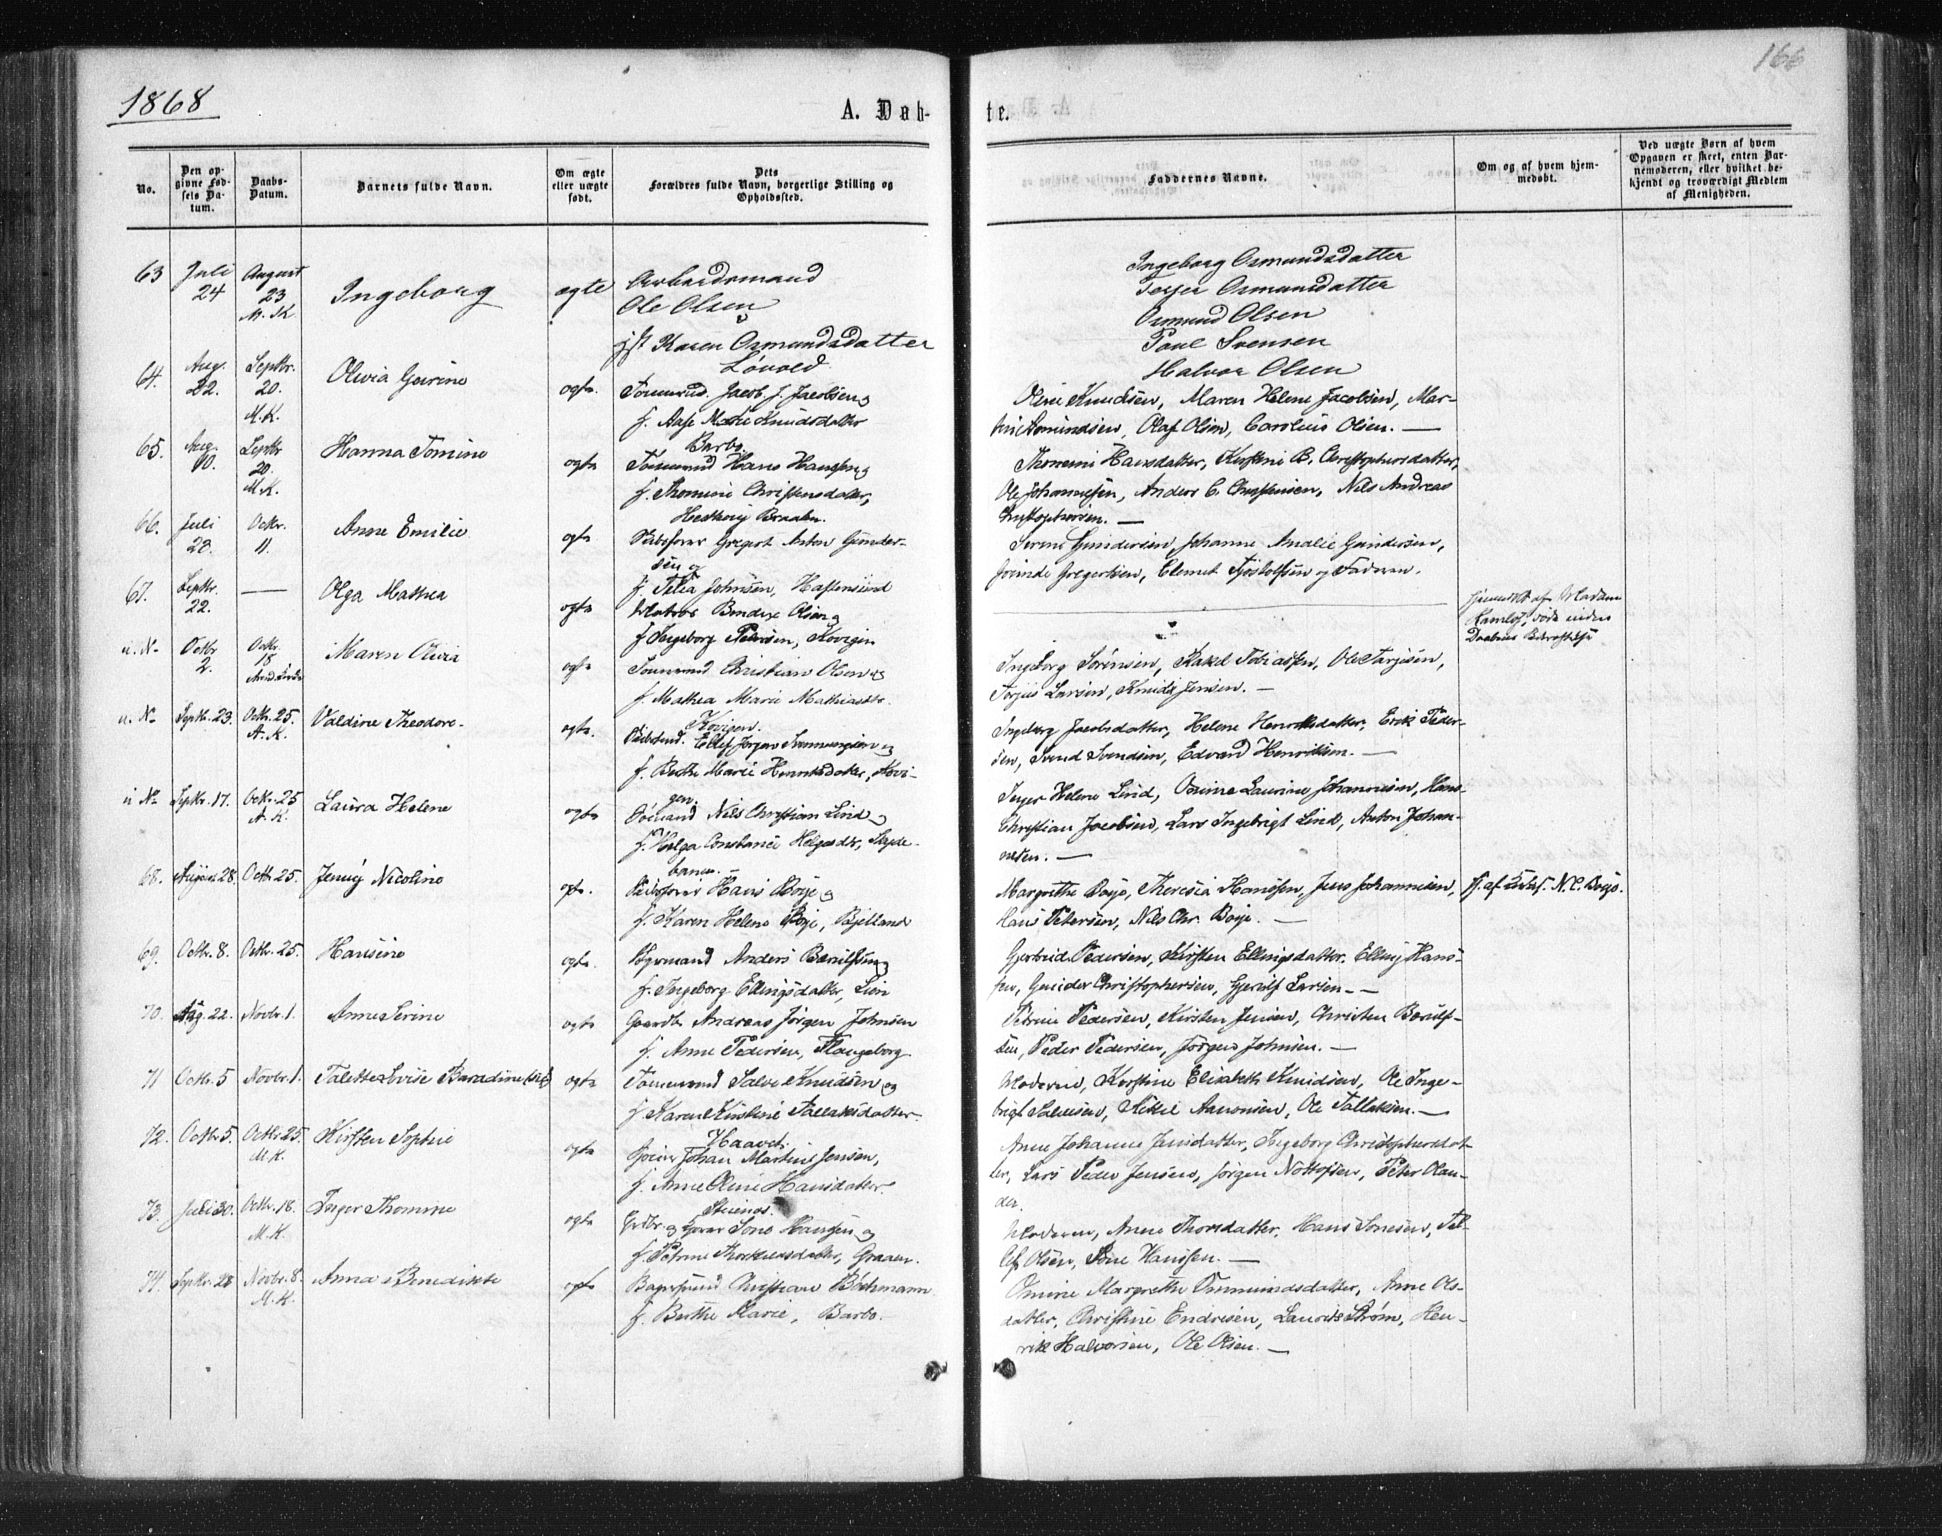 1868
166
A. Døb-
te.
No.
Den op-
givne Fød-
sels Da-
tum.
Daabs-
Datum.
Barnets fulde Navn.
Om ægte
eller uægte
født.
Dets
Forældres fulde Navn, borgerlige Stilling og
Opholdssted.
Faddernes Navne.
Om og af hvem hjem-
medøbt.
Ved uægte Børn af hvem
Opgaven er skeet, enten Bar-
nemoderen, eller hvilket be-
kjendt og troværdigt Medlem
af Menigheden.
63 Juli 24 August 23 Ingeborg ægte Arbeidsmand
Ole Olsen
Karen Osmundsdatter
Løvold
Ingeborg Osmundsdatter
Osmundsdatter
Osmund Olsen
Povel Svensen
Halvor Olsen
64. Aug. 22. Septbr. 20. M.K. Olivia Geirine ægte Tømmrmd. Jacob J. Jacobsen og
f. Aase Marie Knudsdatter
Barbo
Oline Knudsen, Maren Helene Jacobsen, Mar-
Osmundsen, Olaf Olsen, Carolius Olsen. —
65. Aug. 10. Septbr 20. M.K. Hanna Tomine ægte Tømmrmd Hans Hanssen og
f. Thomine Christensdatter,
Braaten.
Thomine Hansdatter, Kirstine B. Christophersdatter,
Ole Johannesen, Anders C. Christensen, Nils Andreas
Christophersen. —
66. Juli 28. Octbr. 11. Anne Emilie ægte Skibsfører Gregert Anton Gunder-
sen og
f. Johnsen, Hastensund
Gundersen, Johanne Amalie Gundersen,
Gregertsen, Clemet og Faderen.
67. Septbr. 22. — Olga Mathea ægte Matros Bendix Olsen og
f. Ingeborg Petersen, Kovigen
Hjemmedøbt af Madam
døde inden
Daabens Bekræftelse
u. No Octbr 2. Octbr. 18 Maren Olivia ægte Tømmrmd Christian Olsen og
f. Mathea Marie
Kovigen.
Ingeborg Sørensen, Tobiassen, Ole Tarjesen,
Larsen, Knud Jensen. —
u. No Septbr. 23. Octbr. 25. A.K. Valdine Theodore. ægte. Ellef Jørgen og
f. Berthe Marie Henriksdatter, Kovi-
gen.
Ingeborg Jacobsdatter, Helene Henriksdatter, Erik Peder-
sen, Svend Svendsen, Edvard Henriksen. —
u No Septbr. 17. Octbr. 25 A.K. Laura Helene ægte Sømand Nils Christian Lind og
f. Helga Constance Helgesdtr, Skyde-
banen.
Inger Helene Lind, Laurine Johannesen, Hans
Christian Jacobsen, Lars Ingebrigt Lind, Anton Johan-
nesen. —
68. August 28. Octbr. 25. Jenny Nicoline ægte. Skibsfører Hans Boye og
f. Karen Helene Boye, Bjelland
Margrethe Boye, Theresia Hanssen, Jens Johannesen,
Hans Petersen, Nils Chr. Boye. —
N. C. Boye.
69. Octbr. 8. Octbr. 25. Hansine ægte. Anders Berulfsen og
f. Ingeborg Ellingsdatter, Lien
Gertrud Pedersen, Kirsten Ellingsdatter, Elling Hans-
sen, Gunder Christophersen, Larsen. —
70. Aug. 22. Novbr. 1. Anne Serine ægte Gaardbr. Andreas Jørgen Johnsen
f. Anne Pedersen, Langeborg
Petrine Pedersen, Kirsten Jensen, Christen Berulf-
sen, Peder Pedersen, Jørgen Johnsen. —
71 Octbr. 5 Novbr. 1. Talette Lovise Baradine (sic) ægte Tømmrmd Salve Knudsen og
f. Karen Kirstine Tallaksdatter
Haavet.
Moderen, Kirstine Elisabeth Knudsen, Ole Inge-
brigt Salvesen, Mikkel Aanonsen, Ole Tallaksen. —
72. Octbr 5. Octbr 25. M.K. Kirsten Sophie ægte Johan Martin Jensen,
f. Anne Oline Hansdatter
Anne Johanne Jensdatter, Ingeborg Christophersdat-
ter, Lars Peder Jensen, Jørgen Nottolfsen, Peter Olan-
der.
73. Juli 30. Octbr. 18. M.K. Inger Thomine ægte Grdbr. og Sone Hanssen og
f. Petrine Thorkildsdatter, Graaen.
Moderen, Anne Thorsdatter, Hans Sonesen, Tel-
lef Olsen, Sone Hanssen. —
74. Septbr. 28 Novbr. 8. M.K. Anna Benedikte ægte Bagersvend Christian Böchmann
f. Berthe Marie, Barbo.
Margrethe Osmundsdatter, Anne Ols-
datter, Christine Endresen, Laurits Strøm, Hen-
rik Halvorsen, Ole Olsen. —